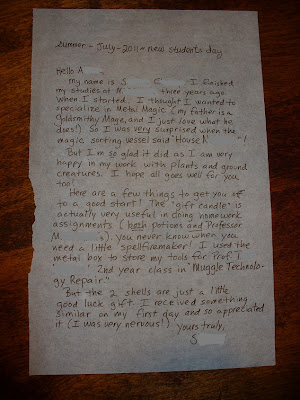 summer - July - 2011 - new students day
Hello A
my name is S C I finished
my studies at M. three years ago.
When I started, I thought I wanted to
specialize in Metal Magic (my father is a
Goldsmithy Mage, and I just love what he
does!) So I was very surprised when the
magic sorting vessel said "House N -!
But I'm so glad it did as I am very
happy in my work with plants and ground
creatures. I hope all goes well for you
too!
Here are a few things to get you off
to a good start! The "gift candle" is
actually very useful in doing homework
assignments (both potions and Professor
M. s). you never know when you
need a little spellfiremaker! I used the
metal box to store my tools for Prof T
' 2nd year class in "Muggle Technolo-
gy Repair."
But the 2 shells are just a little
good luck gift. I received something
similar on my first day and so appreciated
it (I was very nervous!) Yours truly,
S